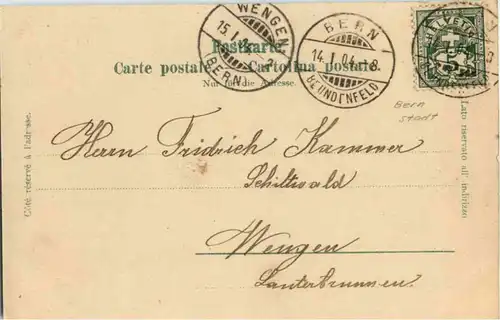 WENGEN
15. I.
(BERN)
BERN
14. I. 04. - 8
BLUNDENFELD
HELVETIA
5
Postkarte.
Carte postale. Cartolina postale.
Nur für die Adresse.
Bern
stadt
Côté réservé à l'adresse.
Lato riservato all' indirizzo.
Herrn Fridrich Kammer
Schiltwald
Wengen
Lauterbrunnen.